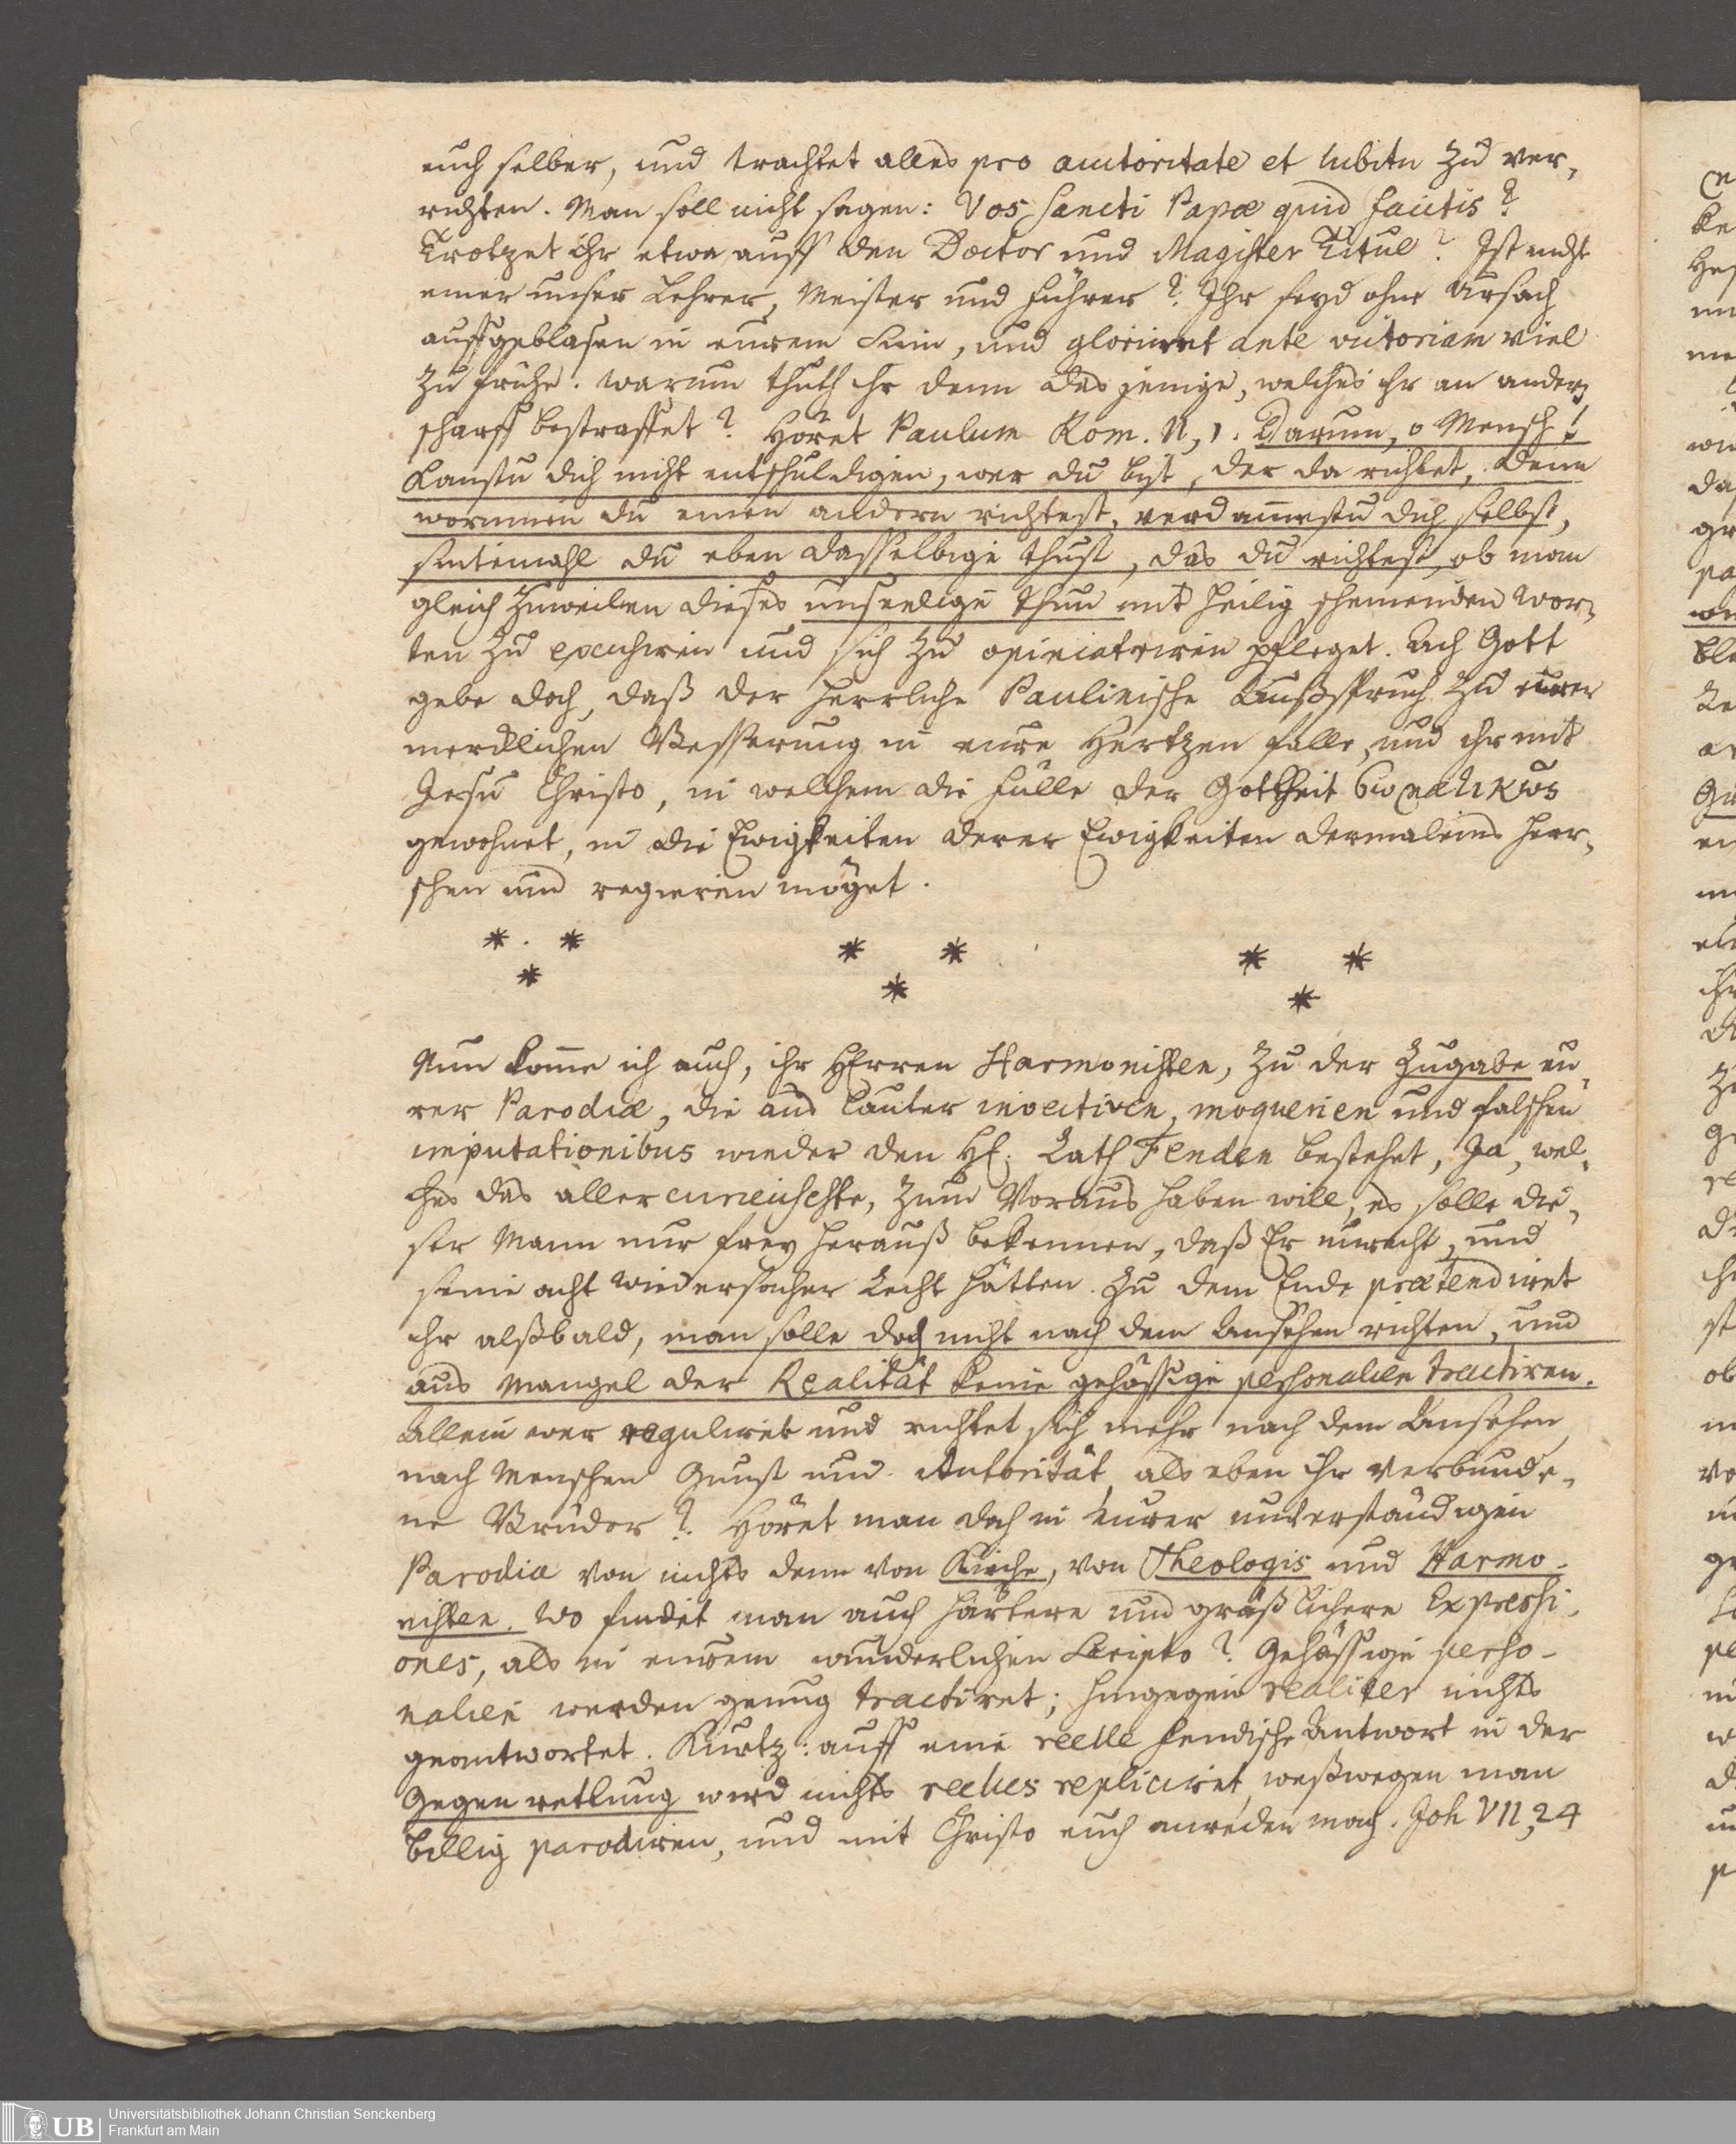 euch selber, und trachtet alles pro autoritate et lubitu zu ver-
richten. Man soll nicht sagen: Vos sancti Papæ quid facitis?
Trotzet ihr etwa auff den Doctor und Magister Titul? Ist nicht
einer unser Lehrer, Meister und Führer? Ihr seyd ohne Ursach
auffgeblasen in eurem Sinn, und gloriiret ante victoriam viel
zu frühe. Warum thuth ihr denn das jenige, welches ihr an andern
scharff bestraffet? Höret Paulum Rom. II, 1. Darum, o Mensch!
kanstu dich nicht entschuldigen, wer du bist, der da richtet, denn
worinnen du einen andern richtest, verdam̅estu dich selbst,
sintemahl du eben dasselbige thust, das du richtest, ob man
gleich zuweilen dieses unseelige thun mit heilig scheinenden Wor-
ten zu excusiren und sich zu opiniatriren pfleget. Ach Gott
gebe doch, daß der herrliche Paulinische Außspruch zu eurer
mercklichen Besserung in eure Hertzen falle, und ihr mit
Jesu Christo, in welchem die Fülle der Gottheit σωματικῶς
gewohnet, in die Ewigkeiten derer Ewigkeiten dermaleins herr-
schen und regieren möget.
* * * * * *
* * *
Nun kom̅e ich auch, ihr HErren Harmonisten, zu der Zugabe eu-
rer Parodiæ, die aus lauter invectiven, moquerien und falschen
imputationibus wieder den H. Rath Fenden bestehet, Ja, wel-
ches das aller curieuschste, zum Voraus haben will, es solle die-
ser Mann nur frey herauß bekennen, daß Er unrecht, und
seine acht Wiedersacher Recht hätten. Zu dem Ende prætendiret
ihr alßbald, man solle doch nicht nach dem Ansehen richten, und
aus Mangel der Realität keine gehässige personalien tractiren.
Allein wer reguliret und richtet sich mehr nach dem Ansehen
nach Menschen Gunst und Autorität, als eben ihr verbunde-
ne Brüder? Höret man doch in eurer unverständigen
Parodia von nichts denn von Kirche, von Theologis und Harmo-
nisten. Wo findet man auch härtere und gräßlichere Expressi-
ones, als in eurem wunderlichen Scripto? Gehässige perso-
nalien werden genug tractiret; hingegen realiter nichts
geantwortet. Kurtz: auff eine reelle Fendische Antwort in der
Gegenrettung wird nichts reelles repliciret, weßwegen man
billig parodiren, und mit Christo euch anreden mag. Joh VII, 24
Universitätsbibliothek Johann Christian Senckenberg
Frankfurt am Main
UB